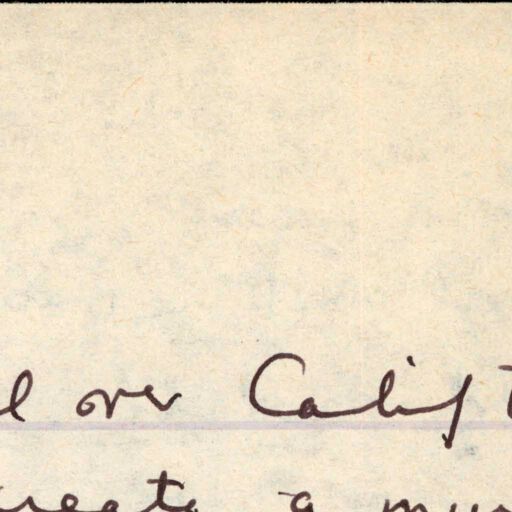 l over Calif t
create a mu